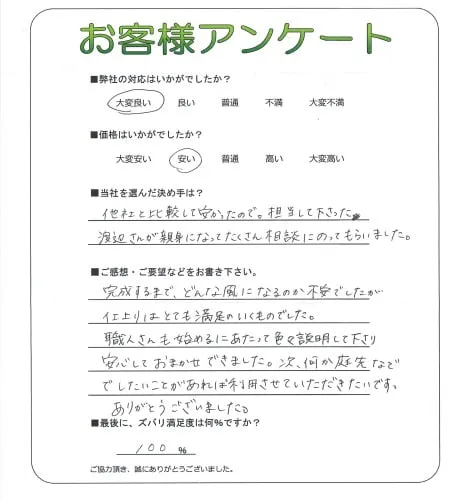 お客様アンケート
■弊社の対応はいかがでしたか？
大変良い 良い 普通 不満 大変不満
■価格はいかがでしたか？
大変安い 安い 普通 高い 大変高い
■当社を選んだ決め手は？
他社と比較して安かったので。担当して下さった
渡辺さんが親身になってたくさん相談にのってもらいました。
■ご感想・ご要望などをお書き下さい。
完成するまで、どんな風になるのか不安でしたが
仕上りはとても満足のいくものでした。
職人さんも始めるにあたって色々説明して下さり
安心しておまかせできました。次、何か庭先などで
でしたいことがあれば利用させていただきたいです。
ありがとうございました。
■最後に、ズバリ満足度は何%ですか？
100 %
ご協力頂き、誠にありがとうございました。